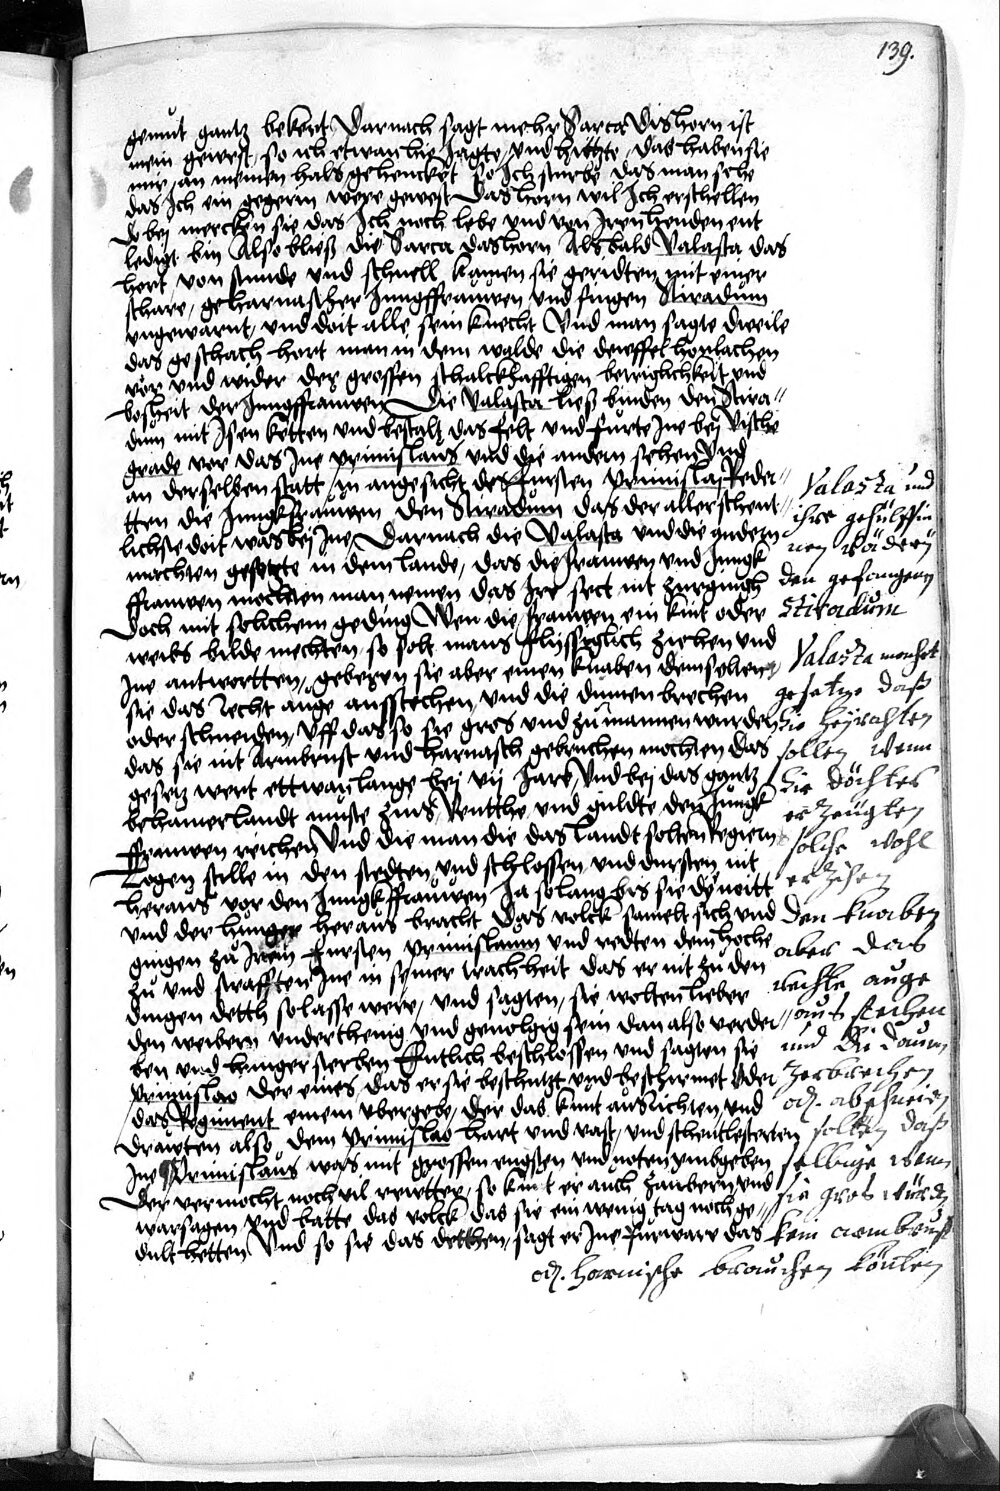 139.
gemut gantz bekert Darnach sagt mehr Sarca Dis horn ist
mein gewest, so ich etwan hie Jagte, und hetzte, das haben sie
mir, an meinen hals gehenckt so Ich sturbe das man sehe
das Ich ein gegerin were gewest Das horn wil Ich erschellen
Do bej mercken sie das Ich noch lebe und von Iren henden ent
ledigt bin Also bließ die Sarca das horn Als bald Valasta das
hort von stunde und schnell kamen sie geridten mit einer
schare, geharnaschter Jungffrauwen und fingen Stiradum
ungewarnt, und doit alle sein knecht Und man sagte dweile
das geschach hort man in dem walde die dewffel honlachen
vor und wider der grossen schalckhafftigen betriglichkeit und
bosheit der Jungffrauwen Die Valasta ließ binden den Stira
dum mit Isen ketten und bestalt das felt und furte Ine bej Vische
grade vor das Ine primislaus und die andern sehen Und
an derselben statt in angesicht des fursten primisla Reder
tten die Jungkfrauwen den Stiradum das der aller schent
lichste doit was bej Ine Darnach die Valasta und die andern
machten gesetzte in dem lande, das die frauwen und Jungk
ffrauwen mochten man nemen das Ire sect nit zurgingh
Doch mit solichem geding Wen die frauwen ein kint oder
weibs bilde mechten, so solt mans flysseglich ziehen und
Ine antwortten, geberen sie aber einen knaben dem solten
sie das Recht auge ausstechen, und die dumen brechen
oder schneiden, Uff das so sie gros und zu mannen wurden
das sie nit Armbrust und harnasch gebruchen mochten Das
gesetz wert ettwan lange bej vij Jare Und bej das gantz
behamerlandt muste zins, Rentthe und guldte den Jungk
ffrauwen reichen Und die man die das landt solten Regiern
Logen stille in den stedten, und schlossen, und dursten nit
heraus vor den Jungkffrauwen Ja so lang bis sie dy noitt
und der hunger heraus bracht Das volck samelt sich und
gingen zu Irem fursten primislaum und redten dem hoche
zu und strafften Ine in seiner trachheit das er nit zu den
dingen detth so lasse were, und sagten, sie wolten lieber
den weibern underthenig und gevolgig sein dan also verder
ben und hunger sterben Entlich beschlossen und sagten sie
primislao der eines, das er sie beschutzt und beschirmet oder
das Regiment einem ubergebe, der das kunt ausrichten, und
drauwten also dem primislao hart und vast, und schentlesterten
Ine Primislaus was mit grossen engsten und noten umbgeben
Der vermocht noch vil rewtter, so kunt er auch zaubern und
warsagen und batte das volck das sie ein wenig tag noch ge
dult hetten Und so sie das detthen, sagt er Ine furware das
Valaska und
ihre gehülffin
nen Rädern
den gefangenen
Stiradum
Valaska machet
gesetze daß
sie heyrahten
sollen Wenn
sie döchter
erzeugten
solche wohl
erzihen
den knaben
aber das
rechte auge
aus stechen
und die daumen
zerbrechen
od. abschneiden
solten daß
selbige wann
sie gros würden
kein armbrust
od. harnische brauchen könten